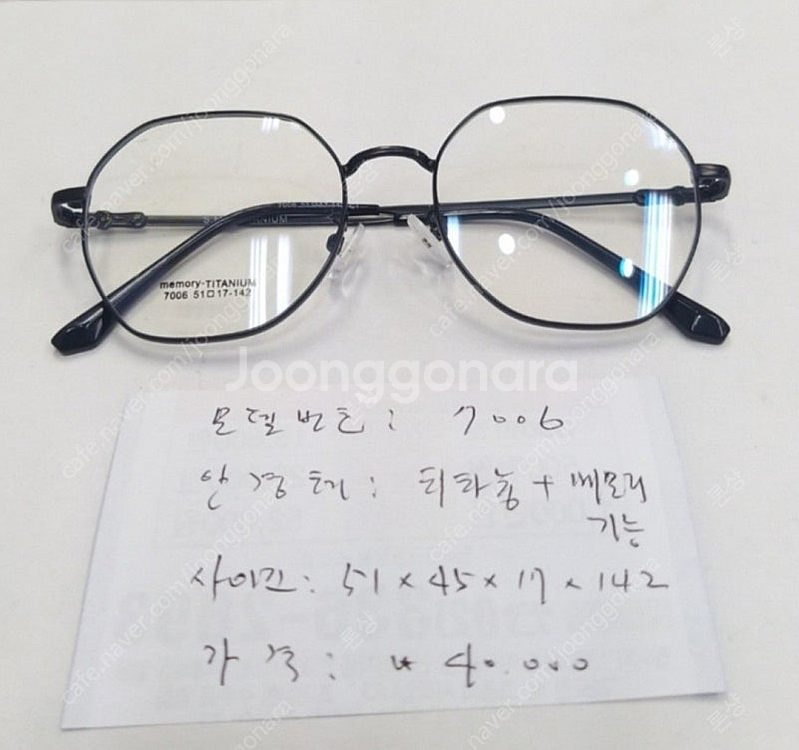 memory-TITANIUM
7006 51□17-142
Joonggonara
모델번호: 7006
안경테: 티타늄 + 메모리
기능
사이즈: 51 x 45 x 17 x 142
가격: ₩ 40.000